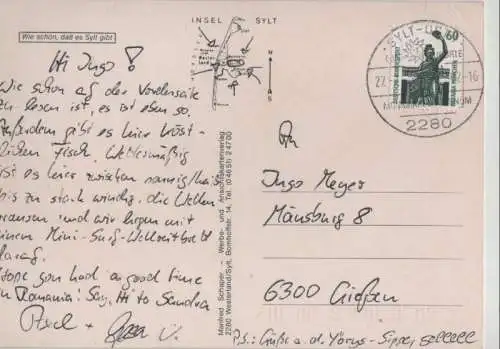 Wie schön, daß es Sylt gibt
INSEL SYLT
Hi Ingo!
Wie schon auf der Vorderseite
zu lesen ist, es ist eben so.
Außerdem gibt es hier köst-
lichen Fisch. Wettermäßig
ist es hier zwischen sonnig/heiß
bis zu stark windig, die Wellen
brausen und wir liegen mit
einem Mini-Surf-Wellenreitbrett
darauf.
Hope you had a good time
in Romania! Say Hi to Sandra
Axel +
Manfred Scheper – Werbe- und Ansichtskartenverlag
2280 Westerland/Sylt, Bomhoffstr. 14, Tel. (04651) 24700
SYLT
60
27.
2280
An
Ingo Meyer
Mäusburg 8
6300 Gießen
P.S.: Grüße a. d.